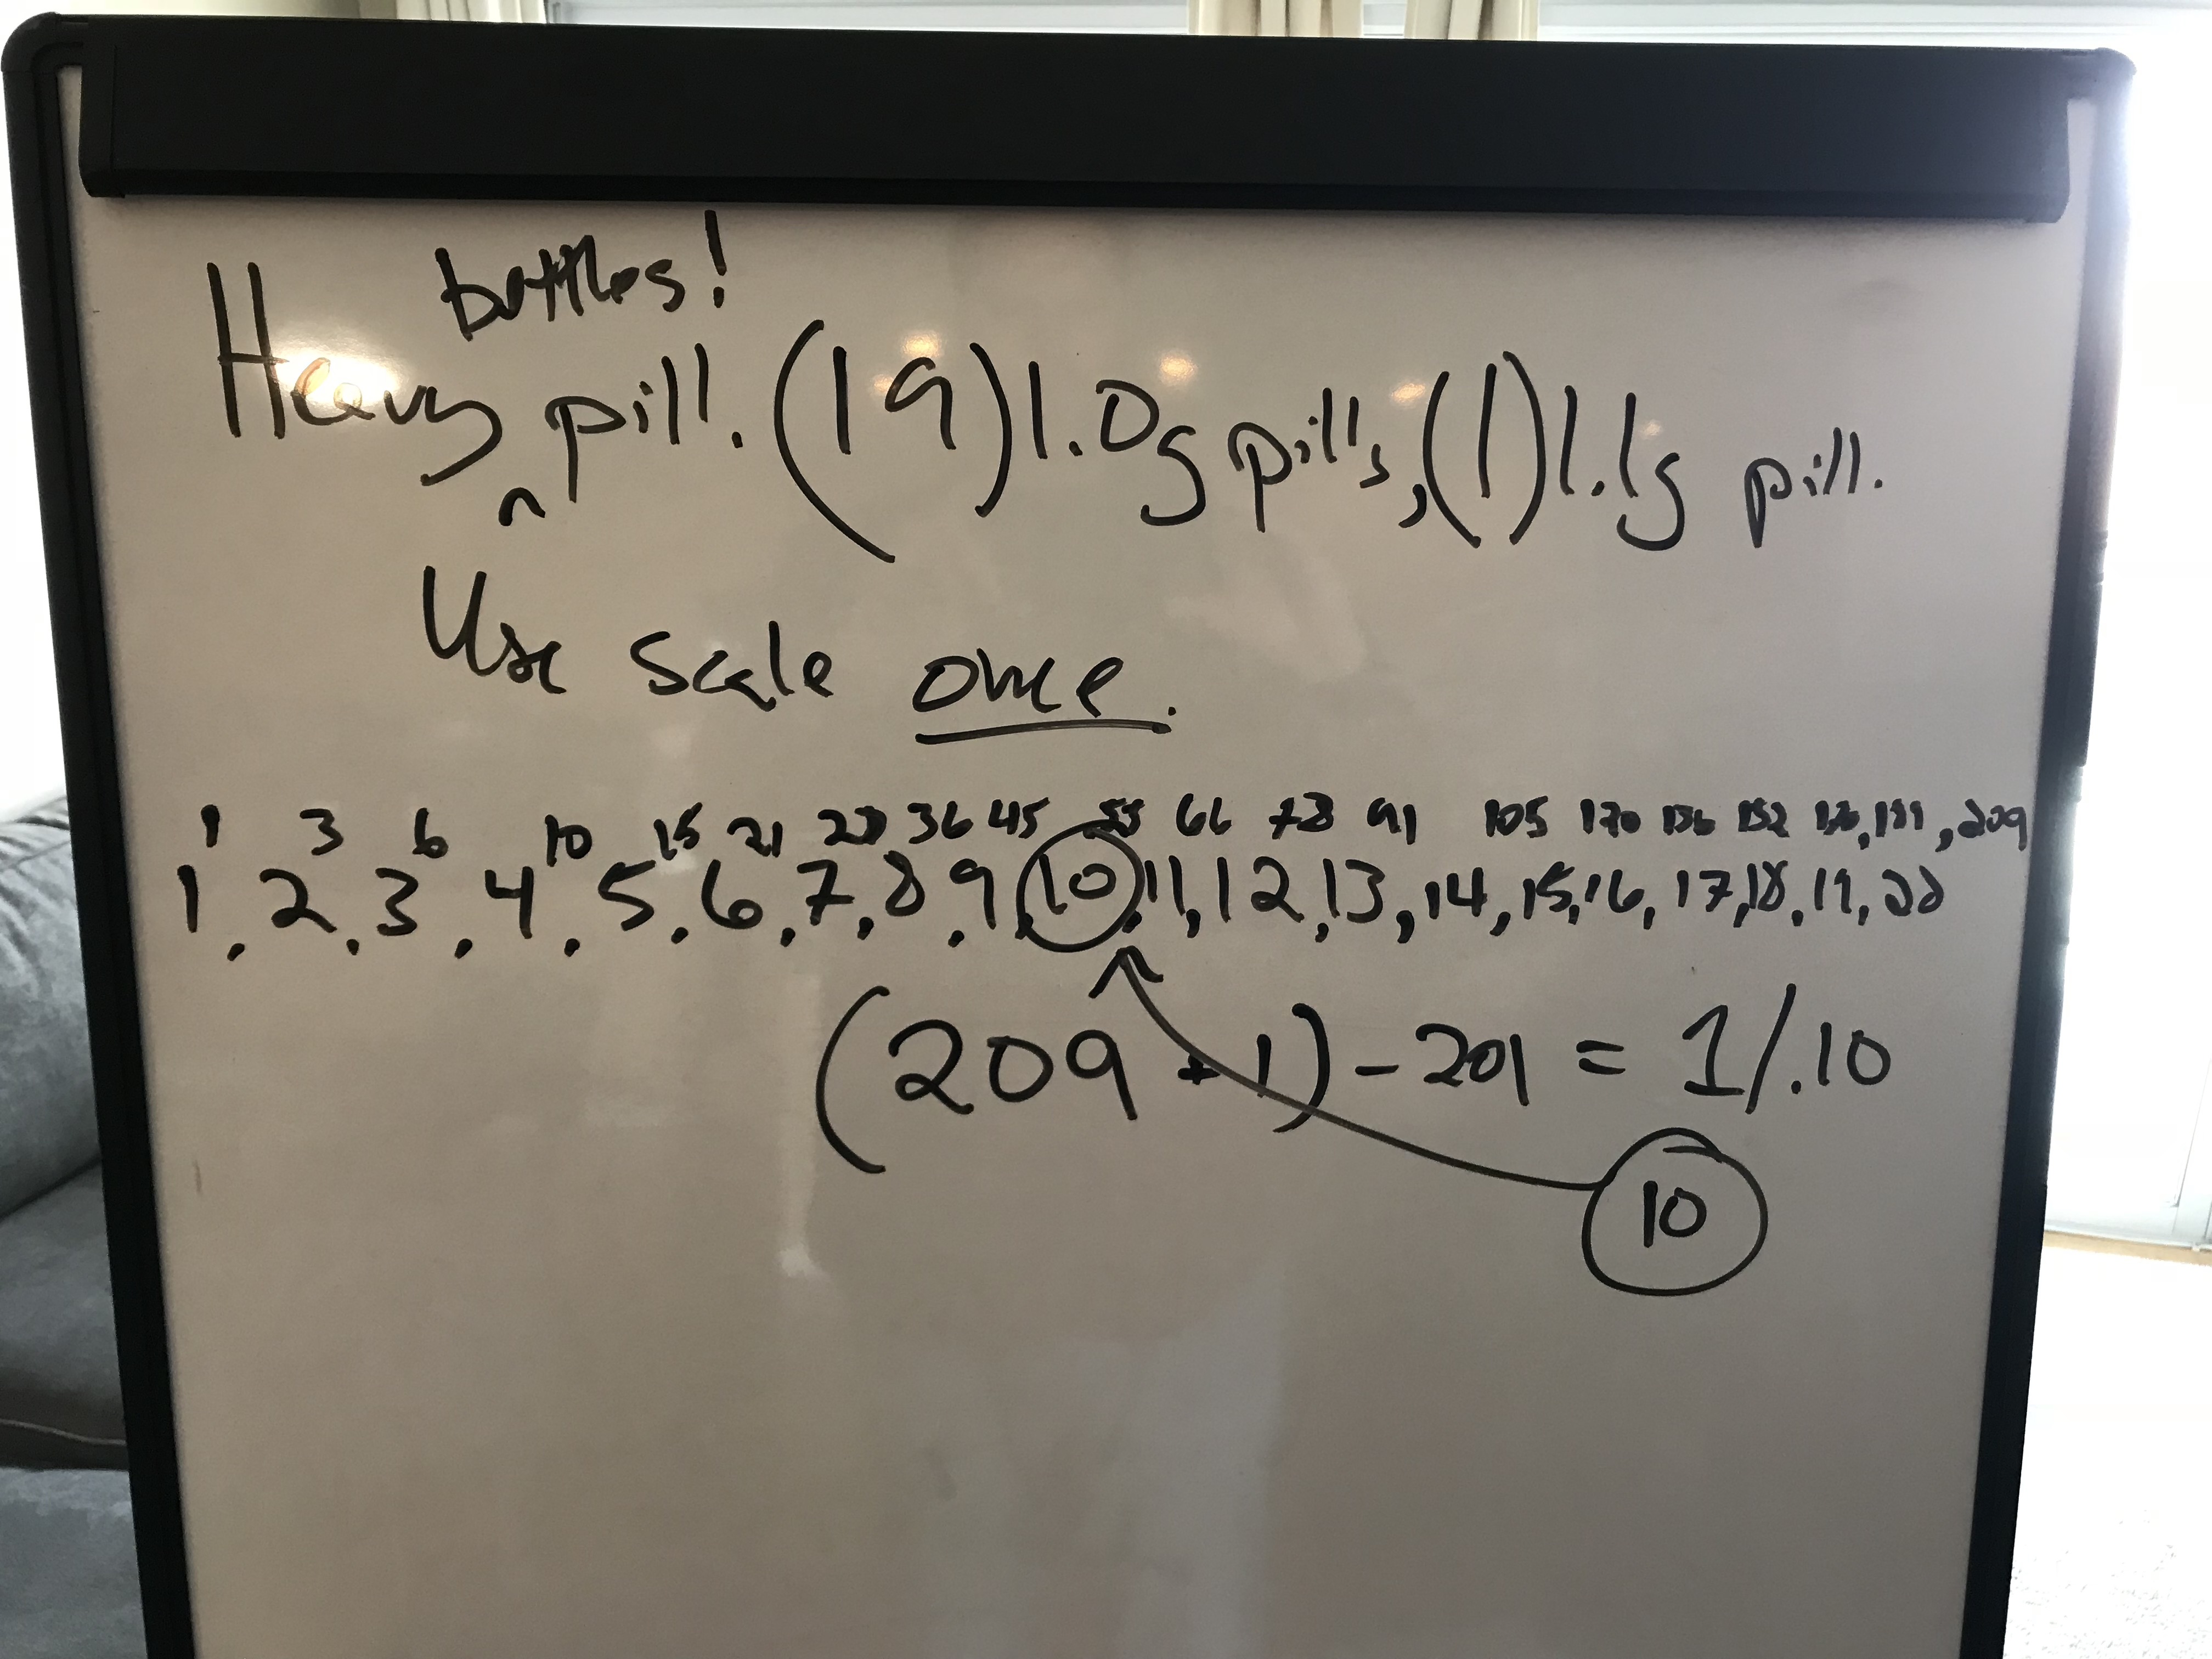 bottles!
Heavy ^ pill. (19) 1.0g pills, (1) 1.1g pill.
Use scale once.
1 3 6 10 15 21 28 36 45 55 66 78 91 105 120 136 152 209
1, 2, 3, 4, 5, 6, 7, 8, 9, 10, 11, 12, 13, 14, 15, 16, 17, 18, 19, 20
(209 + 1) - 201 = 1/.10
10